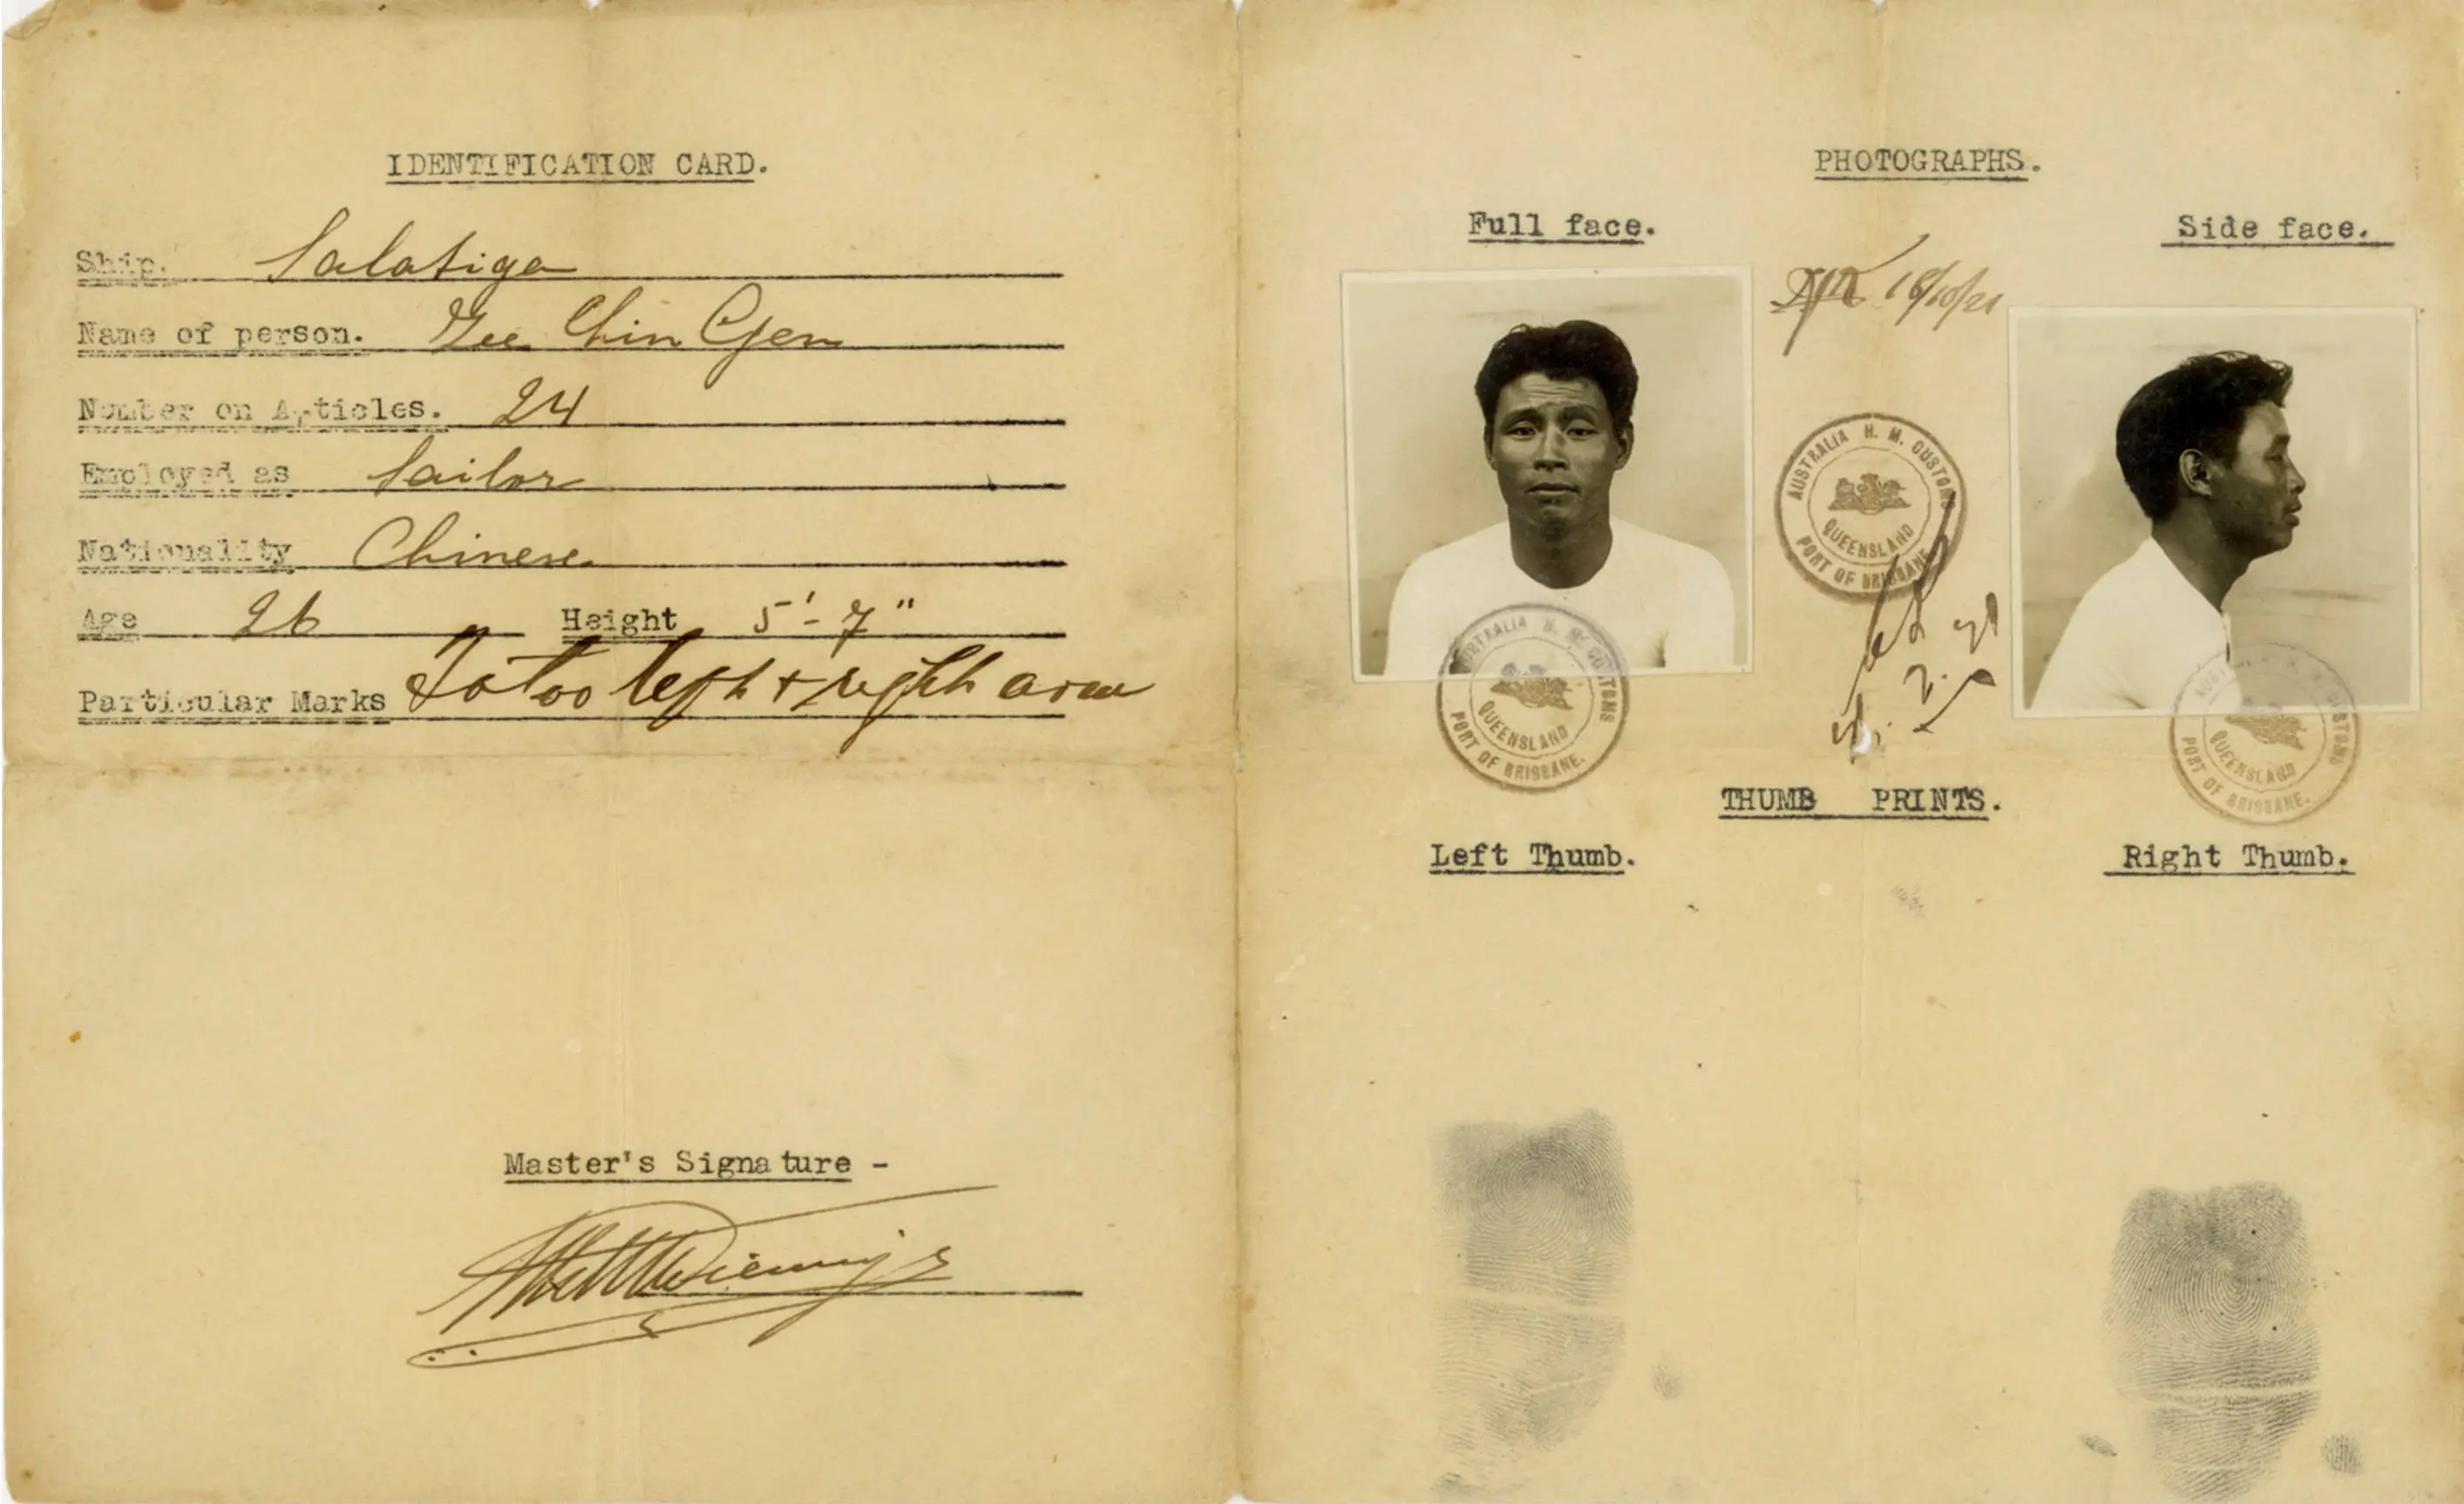 IDENTIFICATION CARD.
Ship. Salatiga
Name of person. Gee Chin Yen
Number on Articles. 24
Employed as Sailor
Nationality Chinese.
Age 26 Height 5'-7"
Particular Marks Tatoo left + right arm
Master's Signature -
PHOTOGRAPHS.
Full face.
Side face.
AUSTRALIA H. M. CUSTOMS
QUEENSLAND
PORT OF BRISBANE.
AUSTRALIA H. M. CUSTOMS
QUEENSLAND
PORT OF BRISBANE.
CUSTOMS
QUEENSLAND
PORT OF BRISBANE.
THUMB PRINTS.
Left Thumb.
Right Thumb.